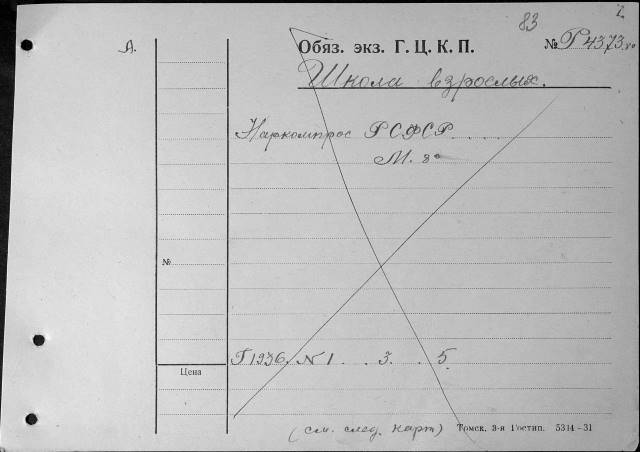 83
А. Обяз. экз. Г. Ц. К. П. № Р 4373
Школа взрослых.
Наркомпрос РСФСР
М. 8°
№
Г 1936. N 1 . . 3 . . 5.
Цена
(см. след. карт) Томск, 3-я Гостип. 5314-31